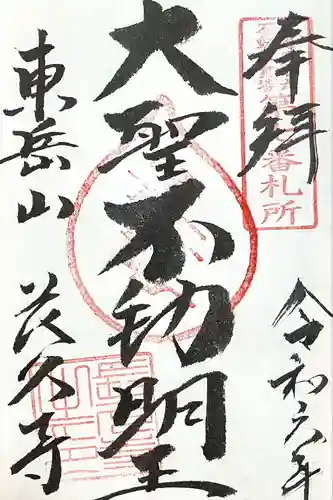 奉拝
番札所
令和六年
大聖不動明王
東岳山
茂久寺